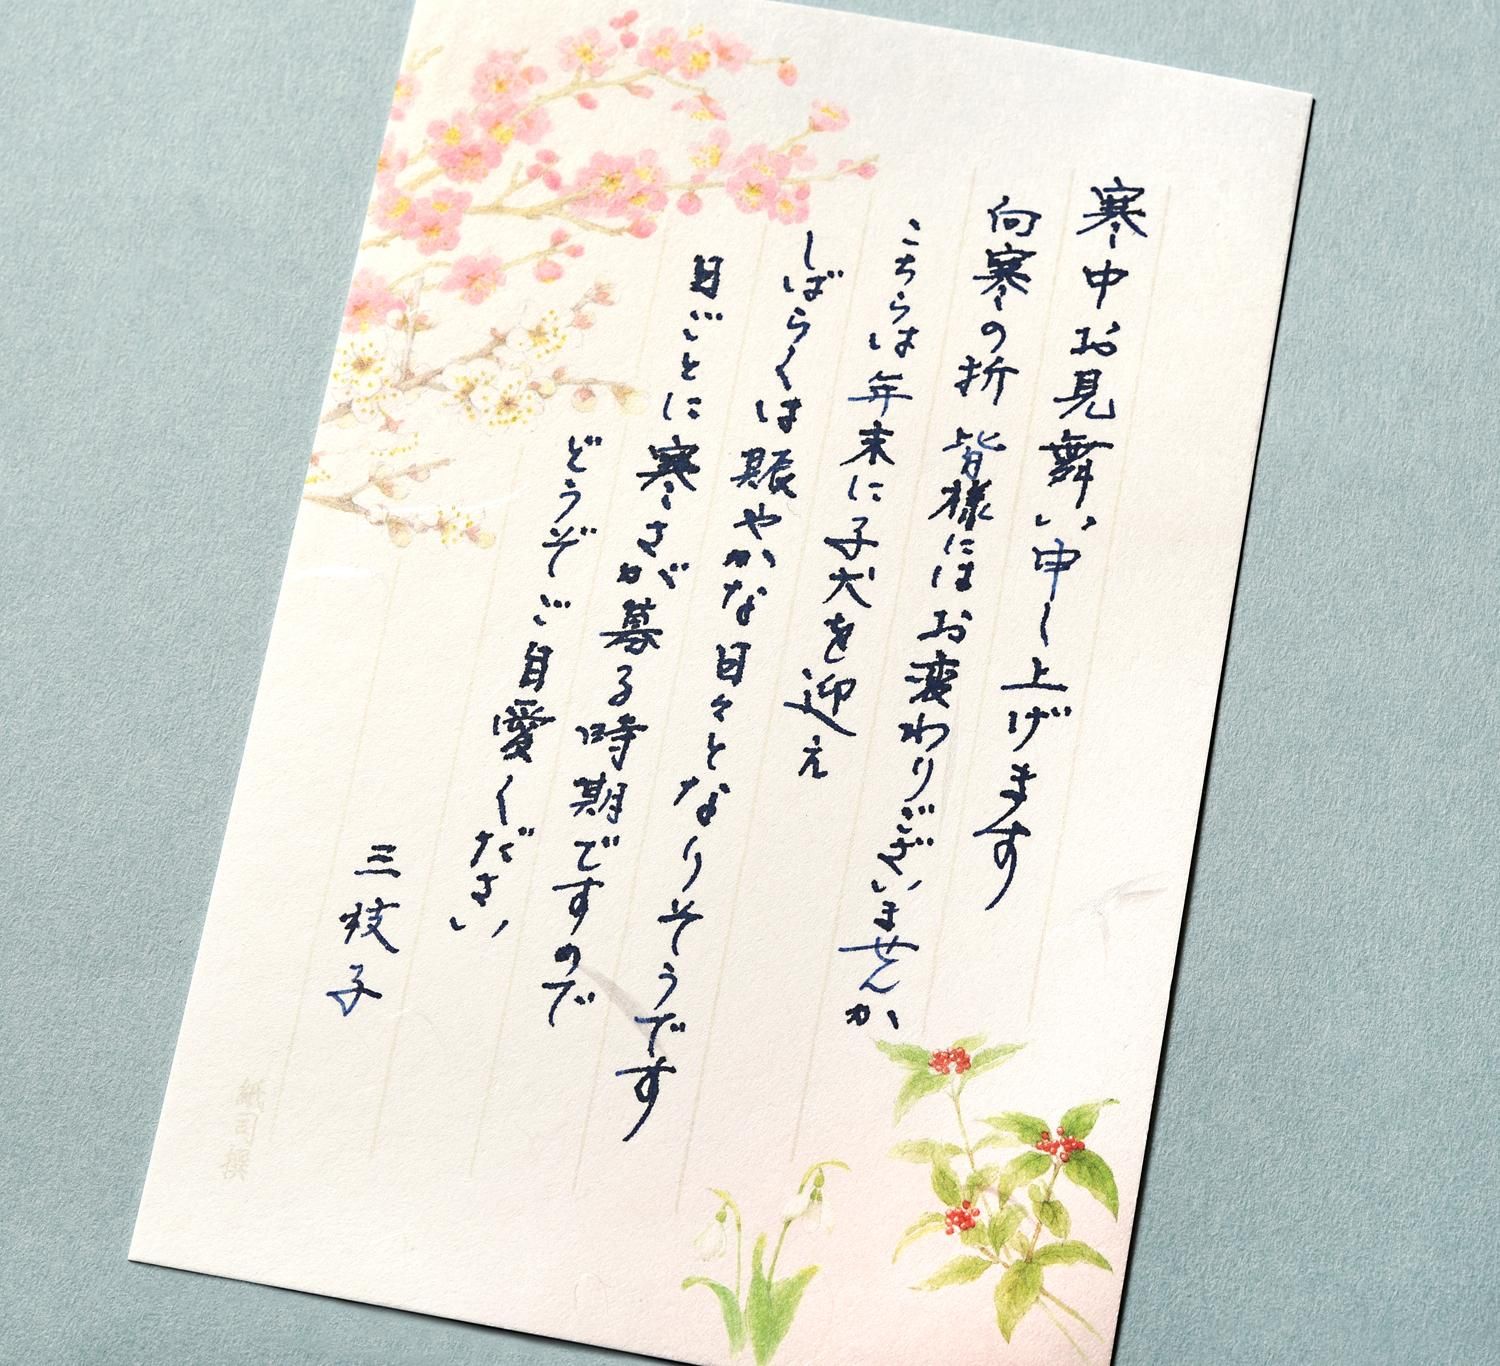 寒中お見舞い申し上げます
向寒の折 皆様にはお変わりございませんか
こちらは年末に子犬を迎え
しばらくは賑やかな日々となりそうです
日ごとに寒さが募る時期ですので
どうぞご自愛ください
三枝子